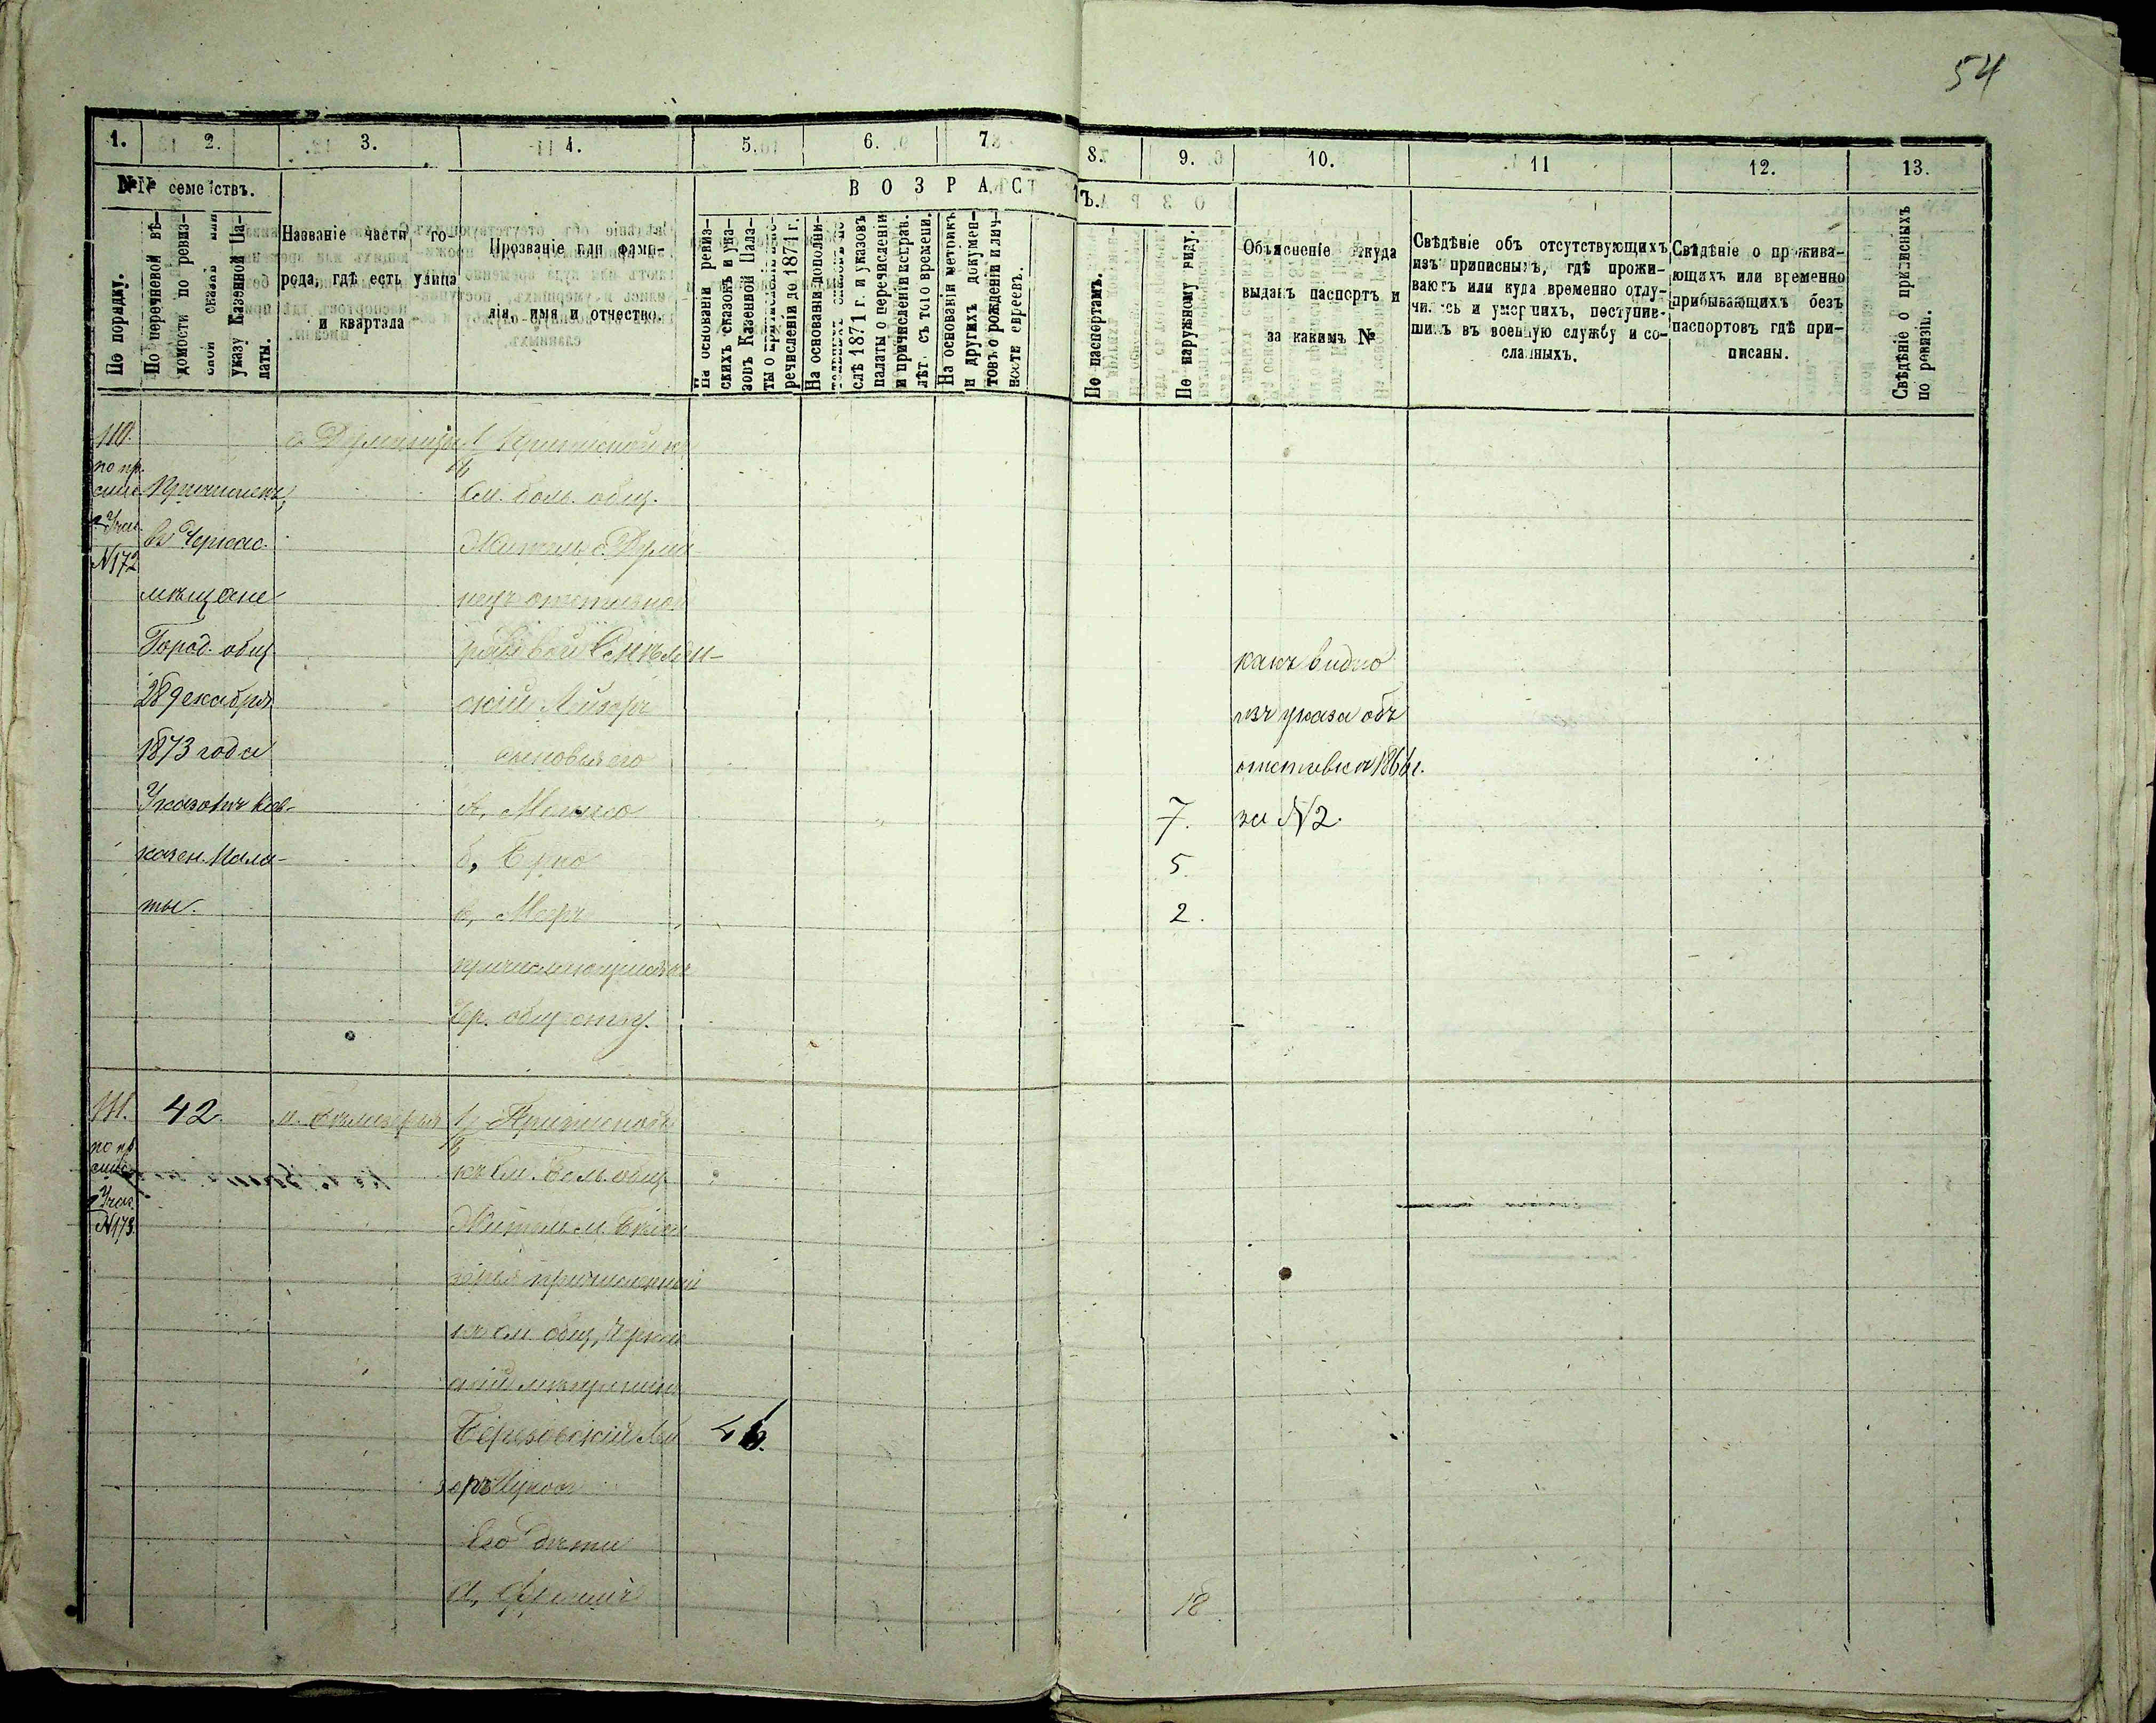 54
1. 2. 3. 4. 5. 6. 7. 8. 9. 10. 11 12. 13.
№№ семействъ.
В О З Р А С Т Ъ.
По порядку.
По перечневой вѣ-
домости по ревиз-
ской сказкѣ или
указу Казенной Па-
латы.
Названіе части го-
рода, гдѣ есть улица
и квартала
Прозваніе или фами-
лія, имя и отчество.
На основаніи ревиз-
скихъ сказокъ и ука-
зовъ Казенной Пала-
ты о
речисленіи до 1871 г.
На основаніи дополни-
слѣ 1871 г. и указовъ
палаты о перечисленіи
и причисленіи исправ.
лѣт. съ того времени.
На основаніи метрикъ
и другихъ докумен-
товъ о рожденіи и лич-
ности евреевъ.
По паспортамъ.
По наружному виду.
Объясненіе откуда
выданъ паспортъ и
за какимъ №
Свѣдѣніе объ отсутствующихъ
изъ приписныхъ, гдѣ прожи-
ваютъ или куда временно отлу-
чились и умершихъ, поступив-
шихъ въ военную службу и со-
сланныхъ.
Свѣдѣніе о прожива-
ющихъ или временно
прибывающихъ безъ
паспортовъ гдѣ при-
писаны.
Свѣдѣніе о приписныхъ
по ревизіи.
110.
по пр.
2 Учас.
N172
Причисленъ
въ Черкас.
мѣщане
Город. общ
28 декабря
1873 года
Указомъ Кіев-
казен. Пала-
ты.
См. боль. общ.
Житель с. Думи-
нецъ отставной
рядовой Смѣлян-
скій Лейзеръ
сыновья его
а, Мошко
б, Берко
в, Мееръ
7.
5.
2.
какъ видно
изъ указа объ
отставкѣ 1866 г.
за N2.
Ср. обществу.
111.
по пр
2 Учас.
N173.
42.
къ См. боль. общ.
Житель м. Бѣло-
зерья причисленный
къ см общ, Черкас
скій мѣщанинъ
Березовскій Лей
зеръ
Его дѣти
46.
18.